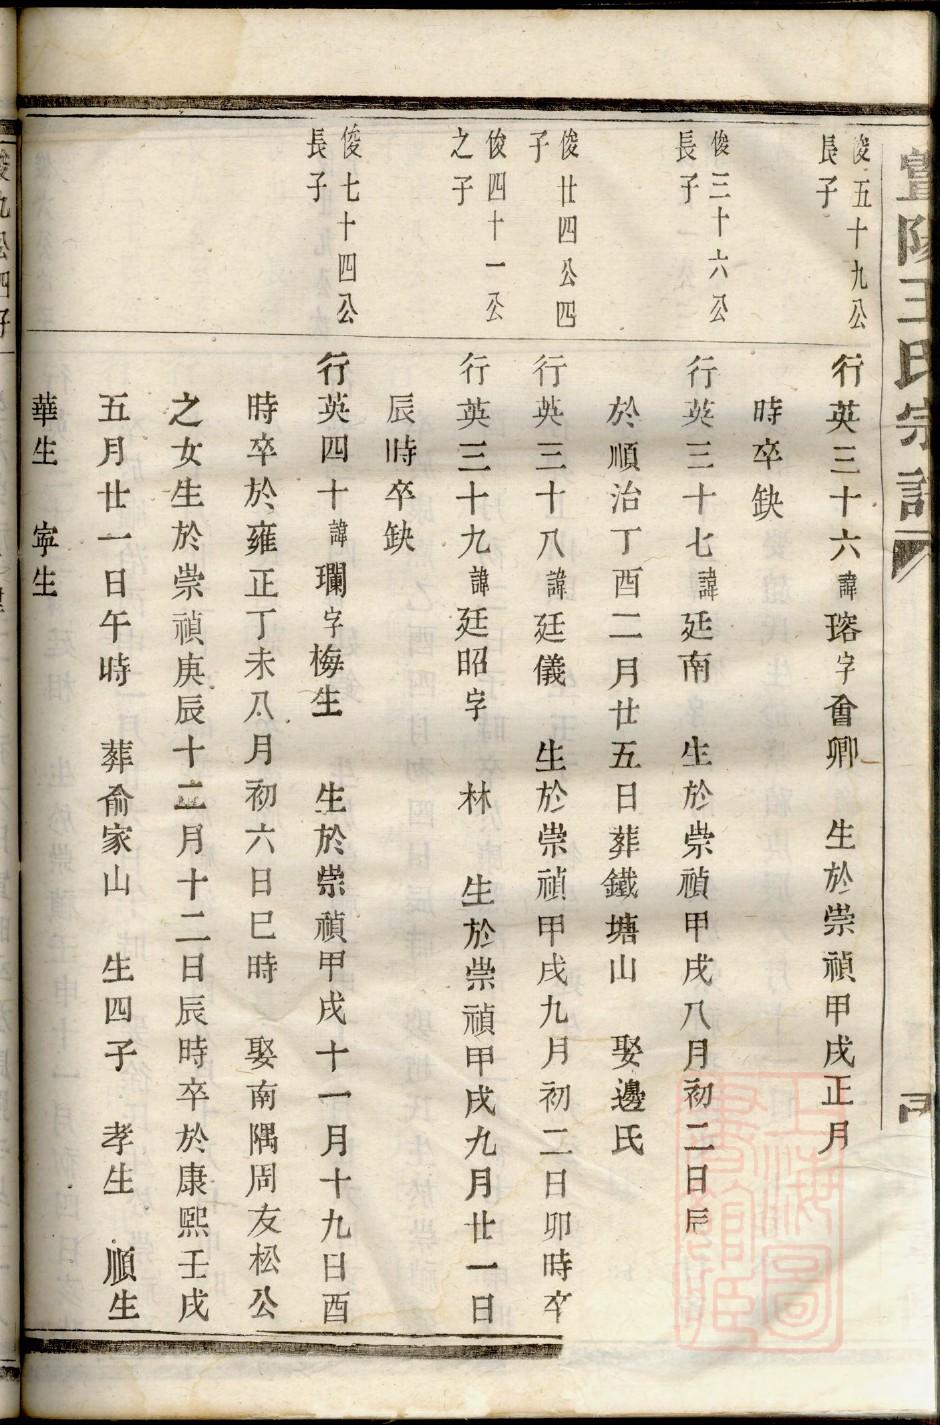 暨陽王氏宗譜
俊五十九公
長子
行英三十六諱瑢字會卿　生於崇禎甲戌正月
時卒缺
俊三十六公
長子
行英三十七諱廷南　生於崇禎甲戌八月初二日辰
於順治丁酉二月廿五日葬鐵塘山　娶邊氏
俊廿四公四
子
行英三十八諱廷儀　生於崇禎甲戌九月初二日卯時卒
俊四十一公
之子
行英三十九諱廷昭字　林　生於崇禎甲戌九月廿一日
辰時卒缺
俊七十四公
長子
行英四十諱瓓字梅生　生於崇禎甲戌十一月十九日酉
時卒於雍正丁未八月初六日巳時　娶南隅周友松公
之女生於崇禎庚辰十二月十二日辰時卒於康熙壬戌
五月廿一日午時　葬俞家山　生四子　孝生　順生
華生　寧生
俊九公四子